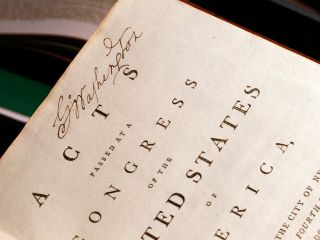 G. Washington
ACTS
PASSED AT A
CONGRESS
OF THE
TED STATES
OF
ERICA,
THE CITY OF NE
FOURTH